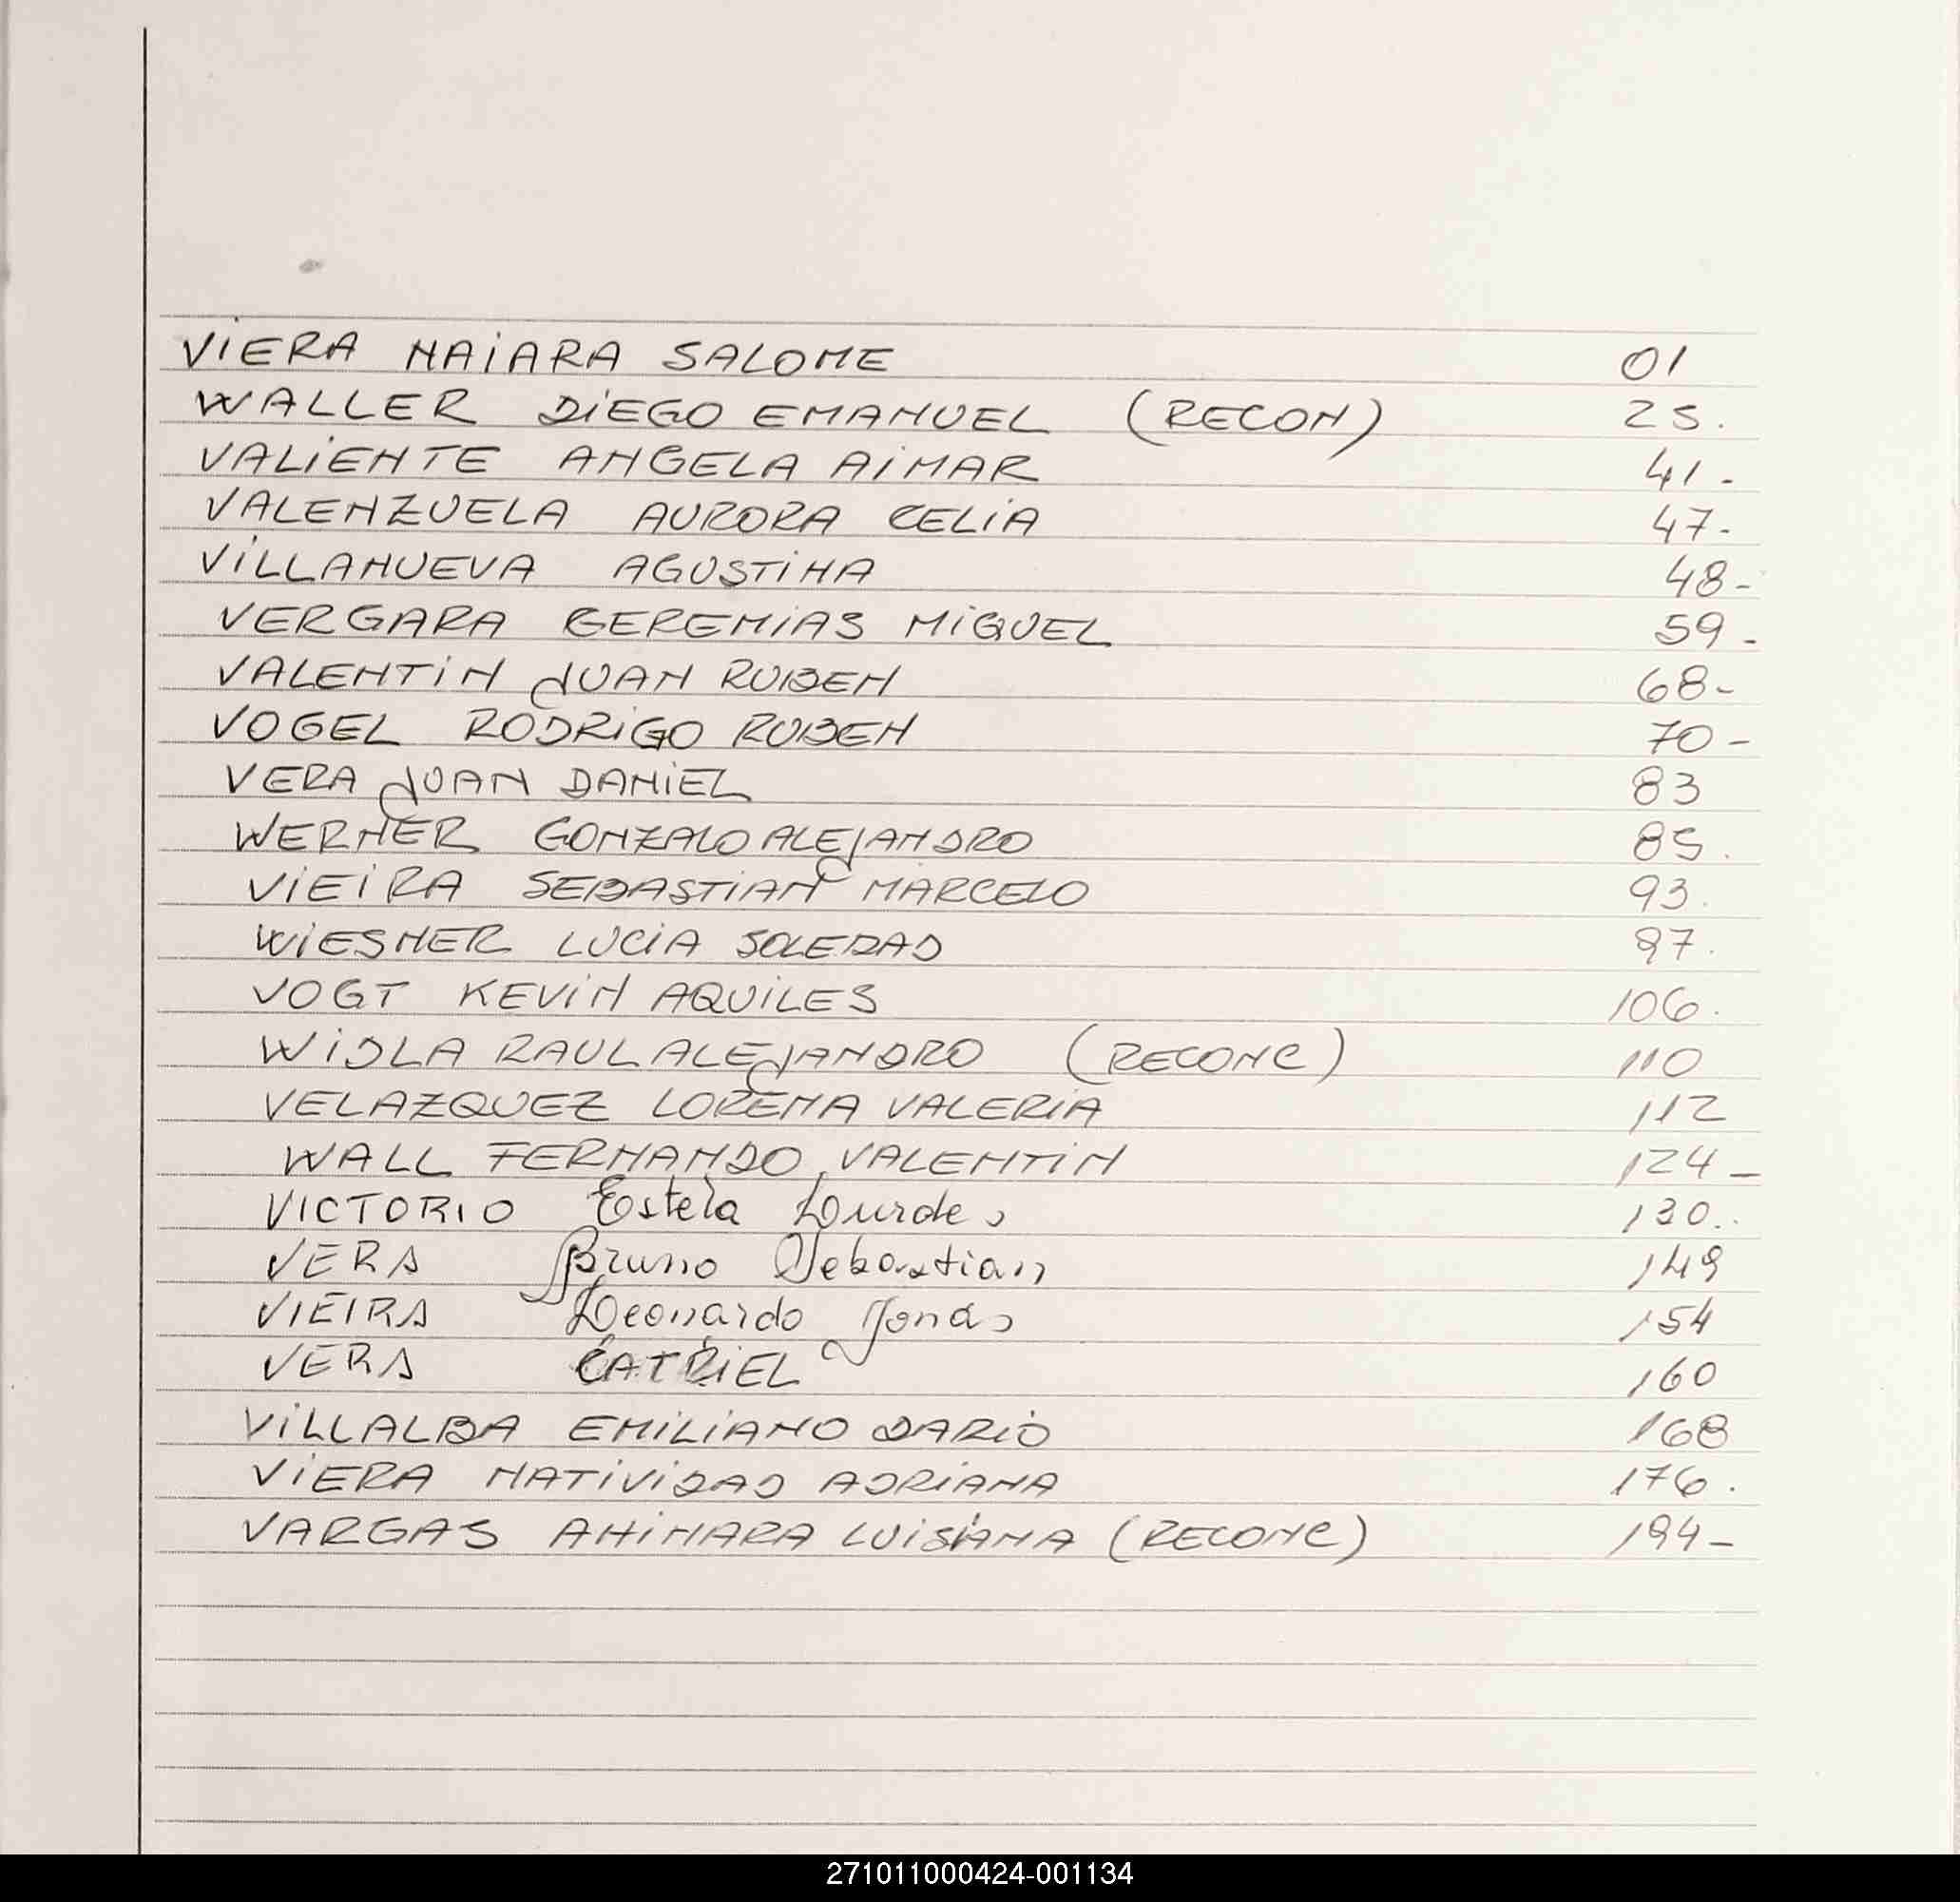 VIERA NAIARA SALOME 01
WALLER DIEGO EMANUEL (RECON) 25.
VALIENTE ANGELA AIMAR 41-
VALENZUELA AURORA CELIA 47-
VILLANUEVA AGUSTINA 48-
VERGARA GEREMIAS MIGUEL 59-
VALENTIN JUAN RUBEN 68-
VOGEL RODRIGO RUBEN 70-
VERA JUAN DANIEL 83
WERNER GONZALO ALEJANDRO 85.
VIEIRA SEBASTIAN MARCELO 93.
WIESNER LUCIA SOLEDAD 97.
VOGT KEVIN AQUILES 106.
WIDLA RAUL ALEJANDRO (RECONC) 110
VELAZQUEZ LORENA VALERIA 112
WALL FERNANDO VALENTIN 124-
VICTORIO Estela Lourdes 130..
VERA Bruno Sebastian 149
VIEIRA Leonardo Jonas 154
VERA CATRIEL 160
VILLALBA EMILIANO DARIO 168
VIERA NATIVIDAD ADRIANA 176.
VARGAS AHINARA LUISIANA (RECONC) 194-
271011000424-001134